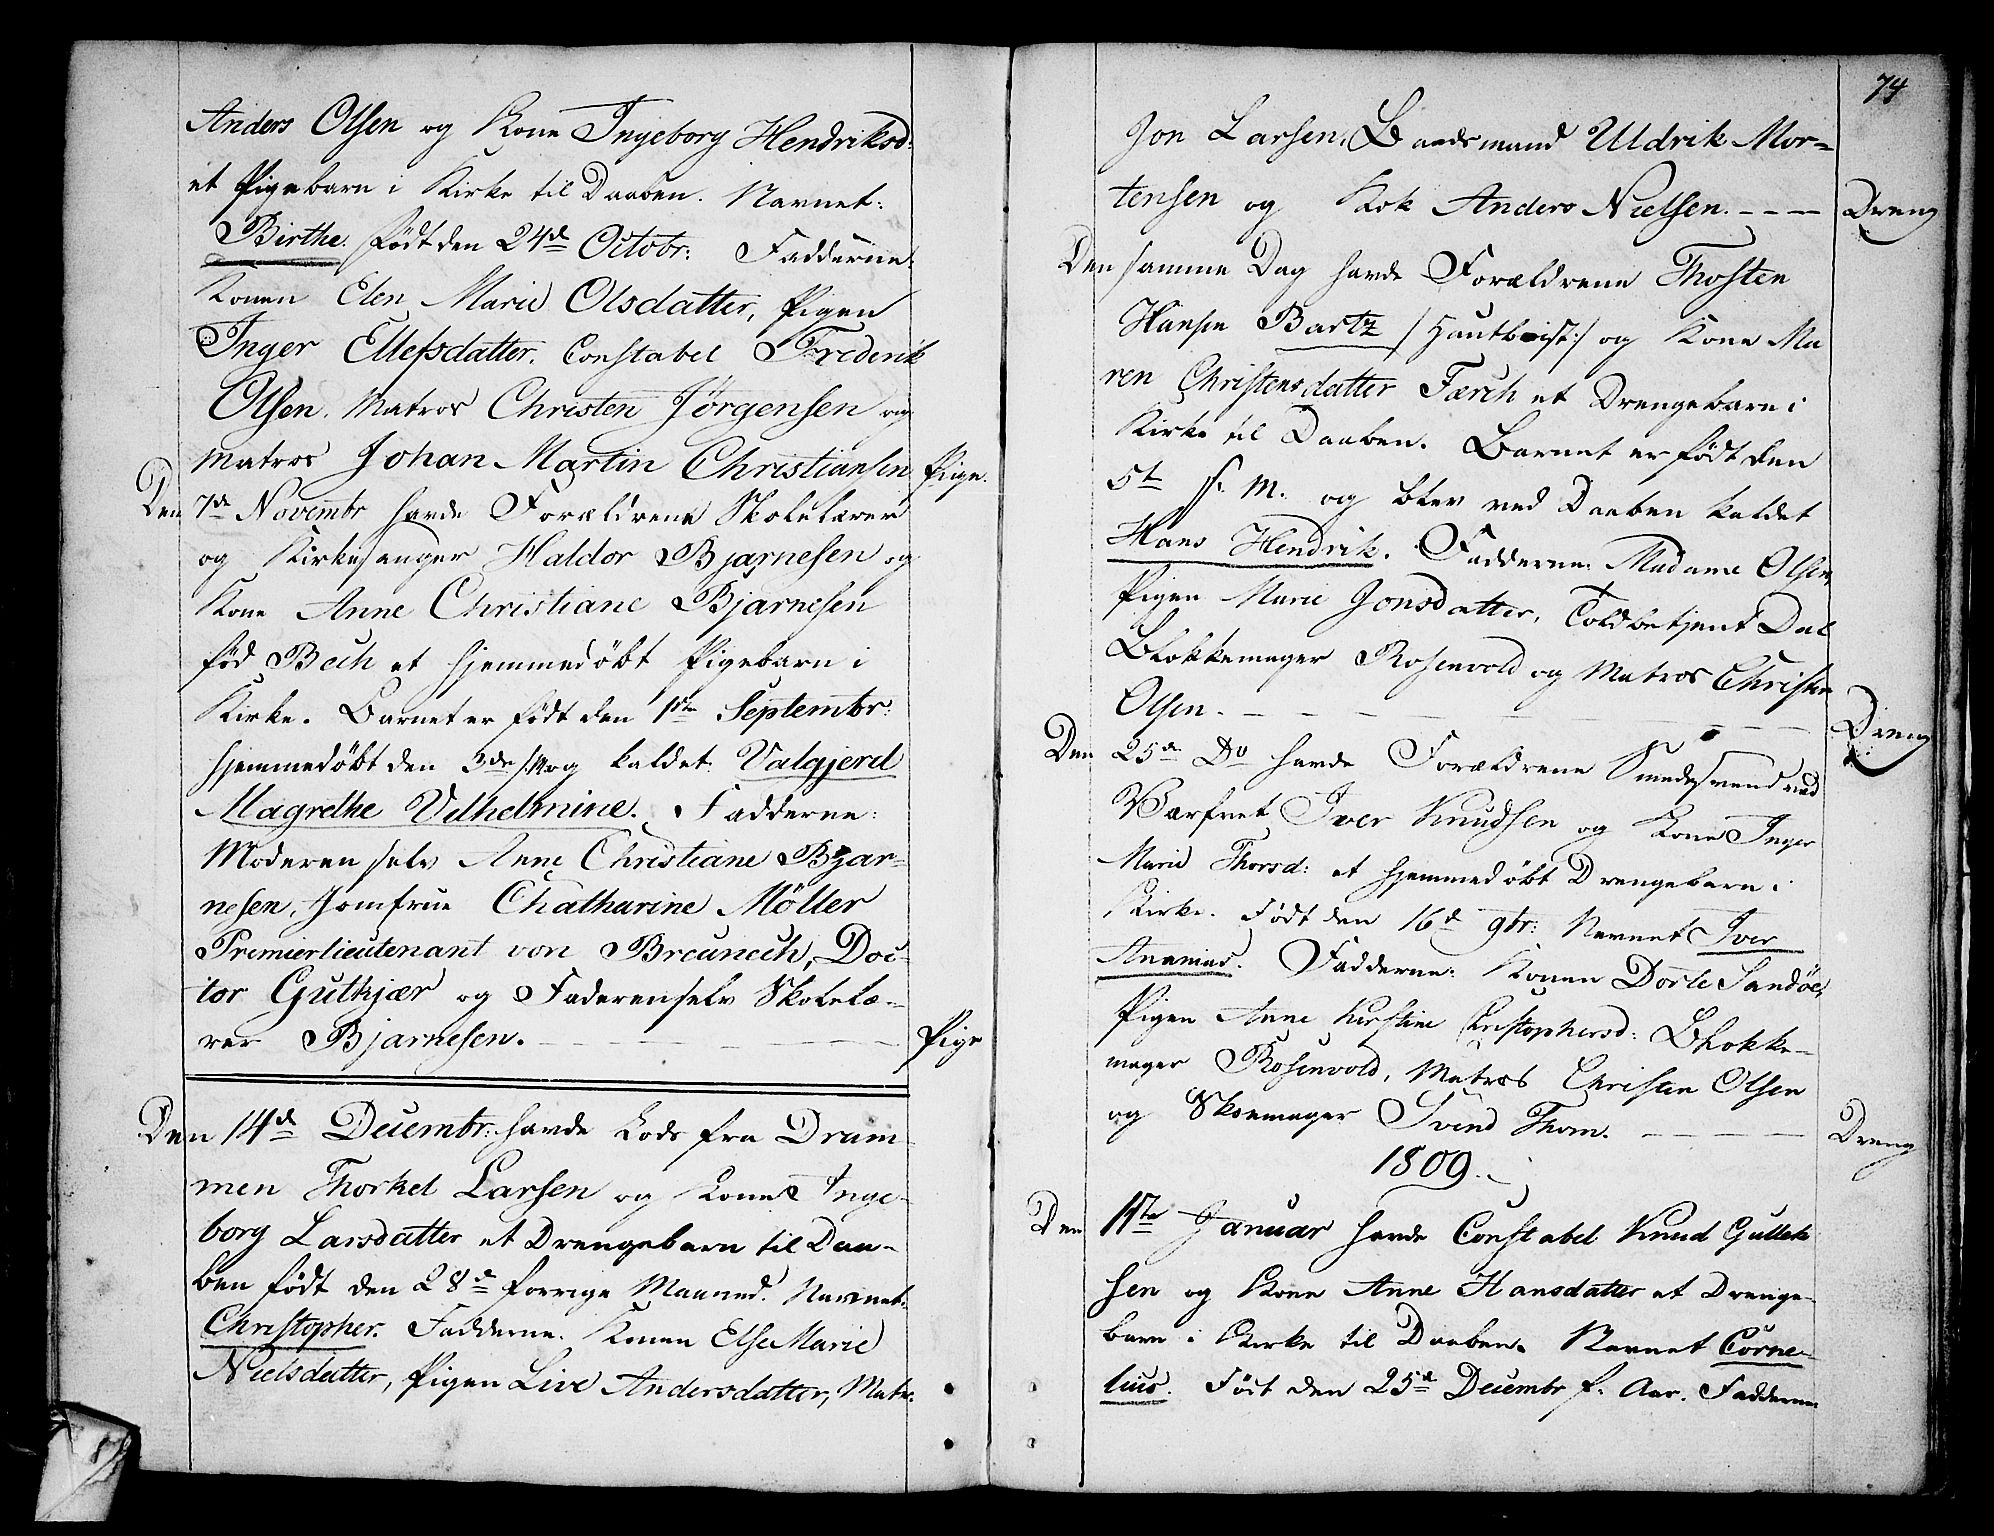 Anders Olsen og Kone Ingeborg Hendriksd:
et Pigebarn i Kirke til Daaben. Navnet:
Birthe. født den 24de Octobr: Fadderne:
Konen Elen Marie Olsdatter, Pigen
Inger Ellefsdatter. Constabel Frederik
Olsen. Matros Christen Jörgensen og
Matros Johan Martin Christiansen Pige.
Den 7de Novembr havde Forældrene Skolelærer
og Kirkesanger Haldor Bjarnesen og
Kone Anne Christiane Bjarnesen
fød Bech et hjemmedøbt Pigebarn i
Kirke. Barnet er født den 1ste Septembr:
hjemmedøbt den 3de og kaldet: Valgjerd
Magrethe Vilhelmine. Fadderne:
Moderen selv Anne Christiane Bjar=
nesen, Jomfrue Chatharine Möller
Premierlieutenant von Breunech, Doc-
tor Gutkjær og Faderen selv Skolelæ-
rer Bjarnesen. Pige
Den 14de Decembr: havde Lods fra Dram-
men Thorkel Larsen og Kone Inge-
borg Larsdatter et Drengebarn til Daa-
ben født den 28de forrige Maaned. Navnet:
Christopher. Fadderne. Konen Else Marie
Nielsdatter, Pigen Live Andersdatter, Matr.
74
Jon Larsen, Baadsmand Uldrik Mor=
tensen og Kok Anders Nielsen. --- Dreng
Den samme Dag havde Forældrene Thosten
Hansen Bartz /Hautboist:/ og Kone Ma
ren Christensdatter Færch et Drengebarn i
Kirke til Daaben. Barnet er født den
5te s. M. og blev ved Daaben kaldet
Hans Hendrik. Fadderne: Madame Olsen
Pigen Marie Jonsdatter, Toldbetjent Dal
Blokkemager Rosenvold og Matros Christen
Olsen. Dreng
Den 25de Do havde Forældrene Smedesvend ved
Værfvet Iver Knudsen og Kone Inger
Marie Thorsd: et hjemmedøbt Drengebarn i
Kirke. Født den 16de 9br: Navnet Iver
Ananias. Fadderne: Konen Dorte Sandöe,
Pigen Anne Kirstine Christophersd: Blokke-
mager Rosenvold, Matros Christen Olsen
og Skoemager Svend Thom. Dreng
1809.
Den 1ste Januar havde Constabel Knud Gullek
sen og Kone Anne Hansdatter et Drenge-
barn i Kirke til Daaben. Navnet Corne-
lius. Født den 25de Decembr f. Aar. Fadderne